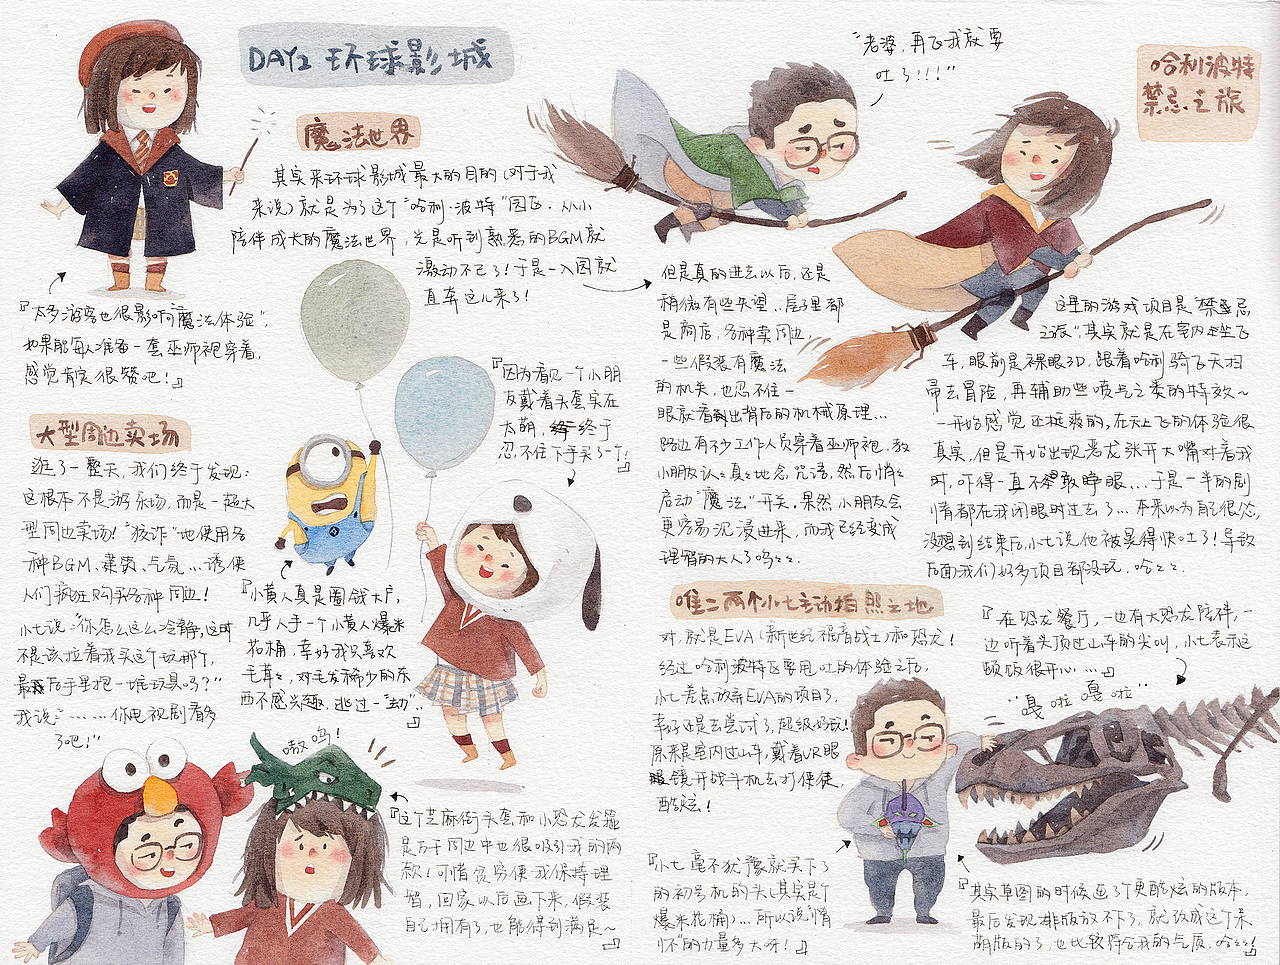 DAY2 环球影城
魔法世界
其实来环球影城最大的目的(对于我
来说)就是为了这个“哈利·波特”园区. 从小
陪伴成长的魔法世界, 光是听到熟悉的BGM就
激动不已了!于是一入园就
直奔这儿来了!
『太多游客也很影响魔法体验”,
如果能每人准备一套巫师袍穿着,
感觉肯定很赞吧!』
大型周边卖场
逛了一整天, 我们终于发现:
这根本不是游乐场, 而是一超大
型周边卖场!“狡诈”地使用各
种BGM、建筑、气氛...诱使
人们疯狂购买各种周边!
小七说:“你怎么这么冷静, 这时
不是该拉着我买这个玩那个,
最后手里抱一堆玩具吗?”
我说:“……你电视剧看多
了吧!”
『因为看见一个小朋
友戴着头套实在
太萌, 终于
忍不住下手买了一个!』
『小黄人真是圈钱大户,
几乎人手一个小黄人爆米
花桶, 幸好我只喜欢
毛茸茸, 对毛发稀少的东
西不感兴趣, 逃过一“劫”..』
嗷呜!
『这个芝麻街头套和小恐龙发箍
是万千周边中也很吸引我的两
款!可惜贫穷使我保持理
智, 回家以后画下来, 假装
自己拥有了, 也能得到满足~』
“老婆, 再飞我就要
吐了!!!”
哈利波特
禁忌之旅
但是真的进去以后, 还是
稍微有些失望.. 屋子里都
是商店, 各种卖周边,
一些假装有魔法
的机关, 也忍不住一
眼就看到出背后的机械原理...
路边有不少工作人员穿着巫师袍, 教
小朋友认认真真地念咒语, 然后悄悄
启动“魔法”开关, 果然小朋友会
更容易沉浸进来, 而我已经变成
理智的大人了呜呜呜..
这里的游戏项目是“禁忌
之旅”, 其实就是在室内坐飞
车, 眼前是裸眼3D, 跟着哈利骑飞天扫
帚去冒险, 再辅助些喷气之类的特效~
一开始感觉还挺爽的, 在天上飞的体验很
真实, 但是开始出现恶龙张开大嘴对着我
时, 吓得一直不敢睁眼...于是一半的剧
情都在我闭眼时过去了... 本来以为自己很怂,
没想到结束后, 小七说他被晃得快吐了!导致
后面我们好多项目都没玩, 哈哈哈..
唯二两个小七主动拍照之地
对, 就是EVA(新世纪福音战士)和恐龙!
经过哈利波特区要甩吐的体验之后,
小七差点放弃EVA的项目了,
幸好还是去尝试了, 超级好玩!
原来是室内过山车, 戴着VR眼
眼镜开战斗机去打使徒,
酷炫!
『在恐龙餐厅, 也有大恐龙陪伴, 一
边听着头顶过山车的尖叫, 小七表示这
顿饭很开心...』
“嘎啦嘎啦”
『小七毫不犹豫就买下了
的初号机的头(其实是个
爆米花桶)... 所以说“情
怀”的力量多大呀!』
『其实草图的时候画了个更酷炫的版本,
最后发现排版放不下了, 就改成这个呆
萌版的了, 也比较符合我的气质, 哈哈!』